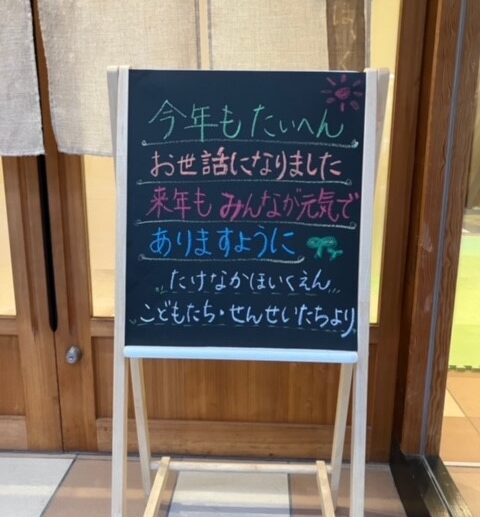 今年もたいへん
お世話になりました
来年もみんなが元気で
ありますように
たけなかほいくえん
こどもたち・せんせいたちより